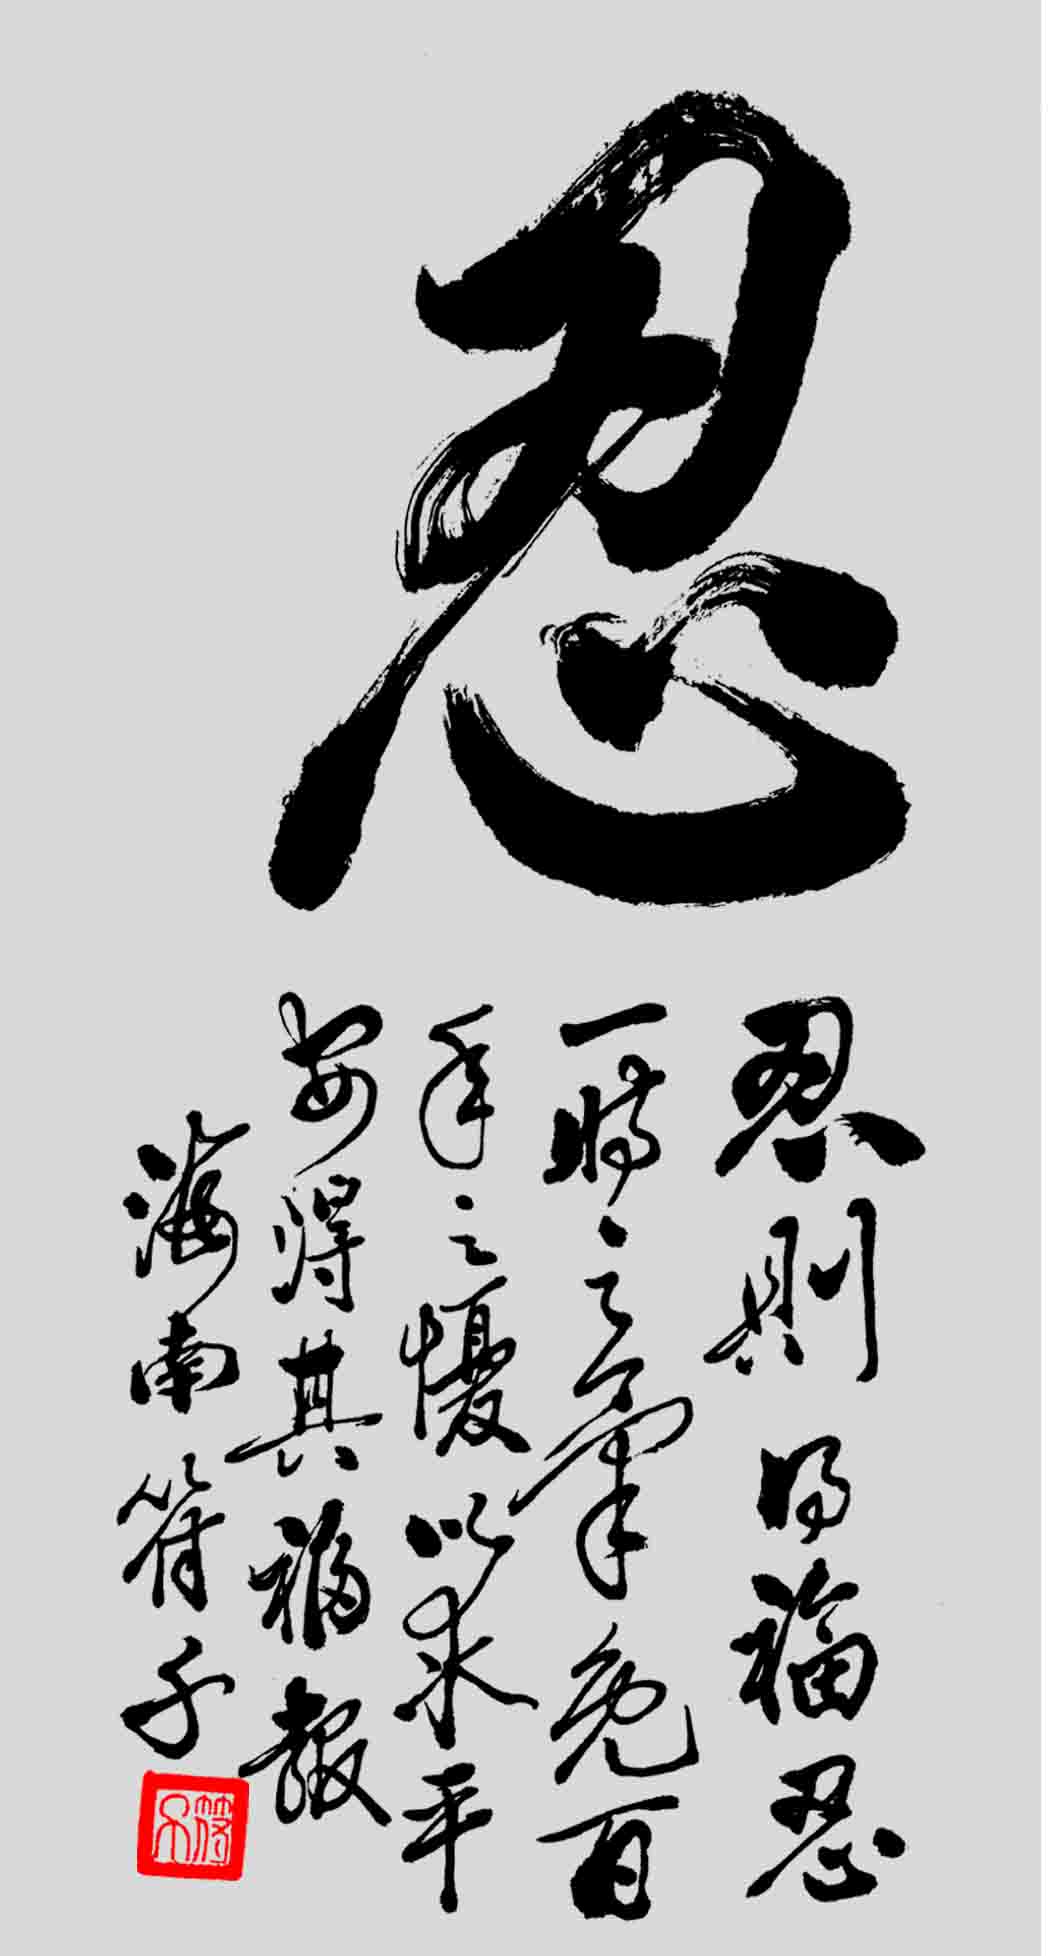 忍
忍則得福忍
一時之氣免百
年之懮以求平
安得其福報
海南符子